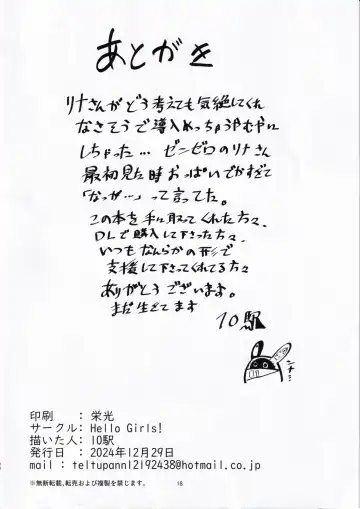 あとがき
リナさんがどう考えても気絶してくれ
なさそうで導入めっちゃうやむやに
しちゃった… ゼンゼロのリナさん
最初見た時おっぱいでかすぎて
「なっが…」って言ってた。
この本を手に取ってくれた方々、
DLで購入して下さった方々、
いつもなんらかの形で
支援して下さってくれてる方々
ありがとうございます。
まだ生きてます
10駅
印刷 : 栄光
サークル: Hello Girls!
描いた人: 10駅
発行日 : 2024年12月29日
mail : teltupann12192438@hotmail.co.jp
※無断転載、転売および複製を禁じます。
18